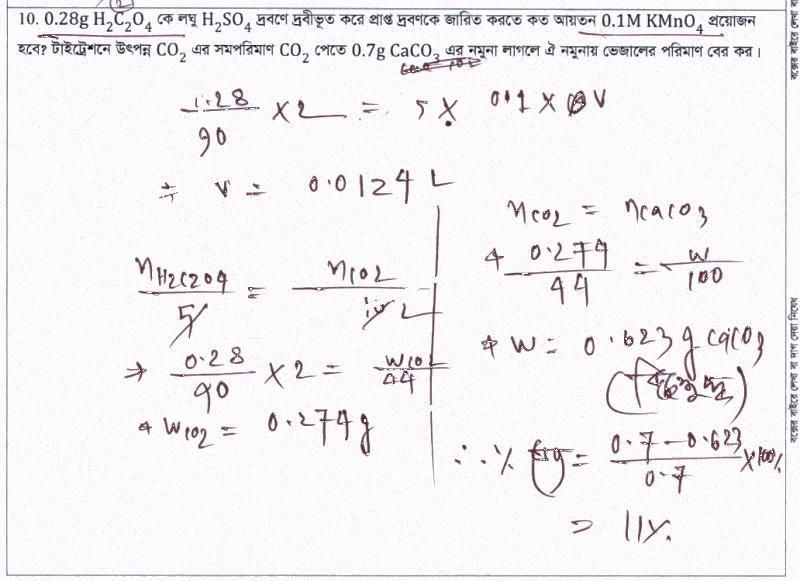 10. 0.28g H₂C₂O₄ কে লঘু H₂SO₄ দ্রবণে দ্রবীভূত করে প্রাপ্ত দ্রবণকে জারিত করতে কত আয়তন 0.1M KMnO₄ প্রয়োজন
হবে? টাইট্রেশনে উৎপন্ন CO₂ এর সমপরিমাণ CO₂ পেতে 0.7g CaCO₃ এর নমুনা লাগলে ঐ নমুনায় ভেজালের পরিমাণ বের কর।
1.28/90 × 2 = 5 × 0.1 × V
⇒ V = 0.0124 L
nH2C2O4/5 = nCO2/10
⇒ 0.28/90 × 2 = WCO2/44
WCO2 = 0.274g
nCO2 = nCaCO3
0.274/44 = W/100
W = 0.623 g CaCO3
(বিশুদ্ধ)
∴ % = 0.7 – 0.623/0.7 × 100%
= 11%
বক্সের বাইরে লেখা বা দাগ দেয়া নিষেধ